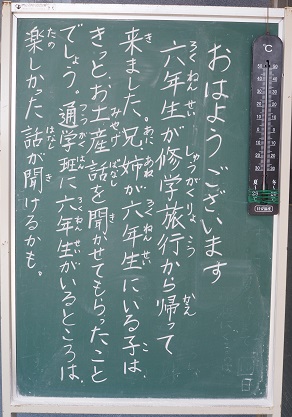 おはようございます
六年生が修学旅行から帰って
来ました。兄姉が六年生にいる子は、
きっとお土産話を聞かせてもらったこと
でしょう。通学班に六年生がいるところは、
楽しかった話が聞けるかも。
℃